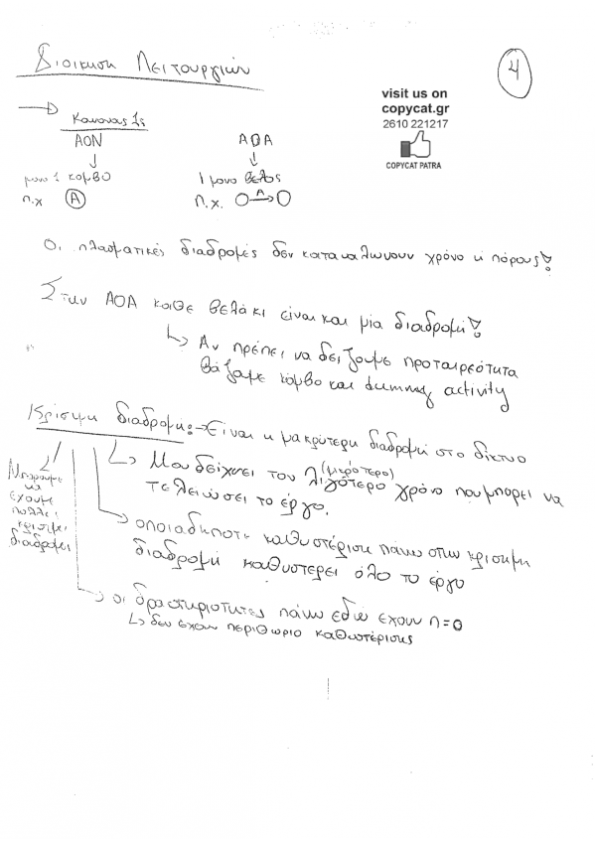 Διοικηση Λειτουργιών
4
visit us on
copycat.gr
2610 221217
COPYCAT PATRA
Κανονας 1ς
ΑΟΝ
ΑΟΑ
μονο 1 κομβο
1 μονο βελος
π.χ Α
π.χ. Α
Οι πλασματικές διαδρομές δεν καταναλωνουν χρόνο κ πόρους!
Στην ΑΟΑ καθε βελακι είναι και μία διαδρομή!
Αν πρέπει να δείξουμε προταιρεότητα
βάζουμε κόμβο και dummy activity
Κρίσιμη διαδρομή: Είναι η μακρύτερη διαδρομή στο δίκτυο
Μου δείχνει τον λιγότερο (μικρότερο) χρόνο που μπορει να
τελειώσει το έργο.
Μπορουμε
να
έχουμε
πολλες
κρισιμες
διαδρομες
οποιαδηποτε καθυστέριση πάνω στην κρισιμη
διαδρομή καθυστερει όλο το έργο
οι δραστηριοτητες πάνω εδώ εχουν π=0
δεν εχουν περιθωριο καθυστέρισης